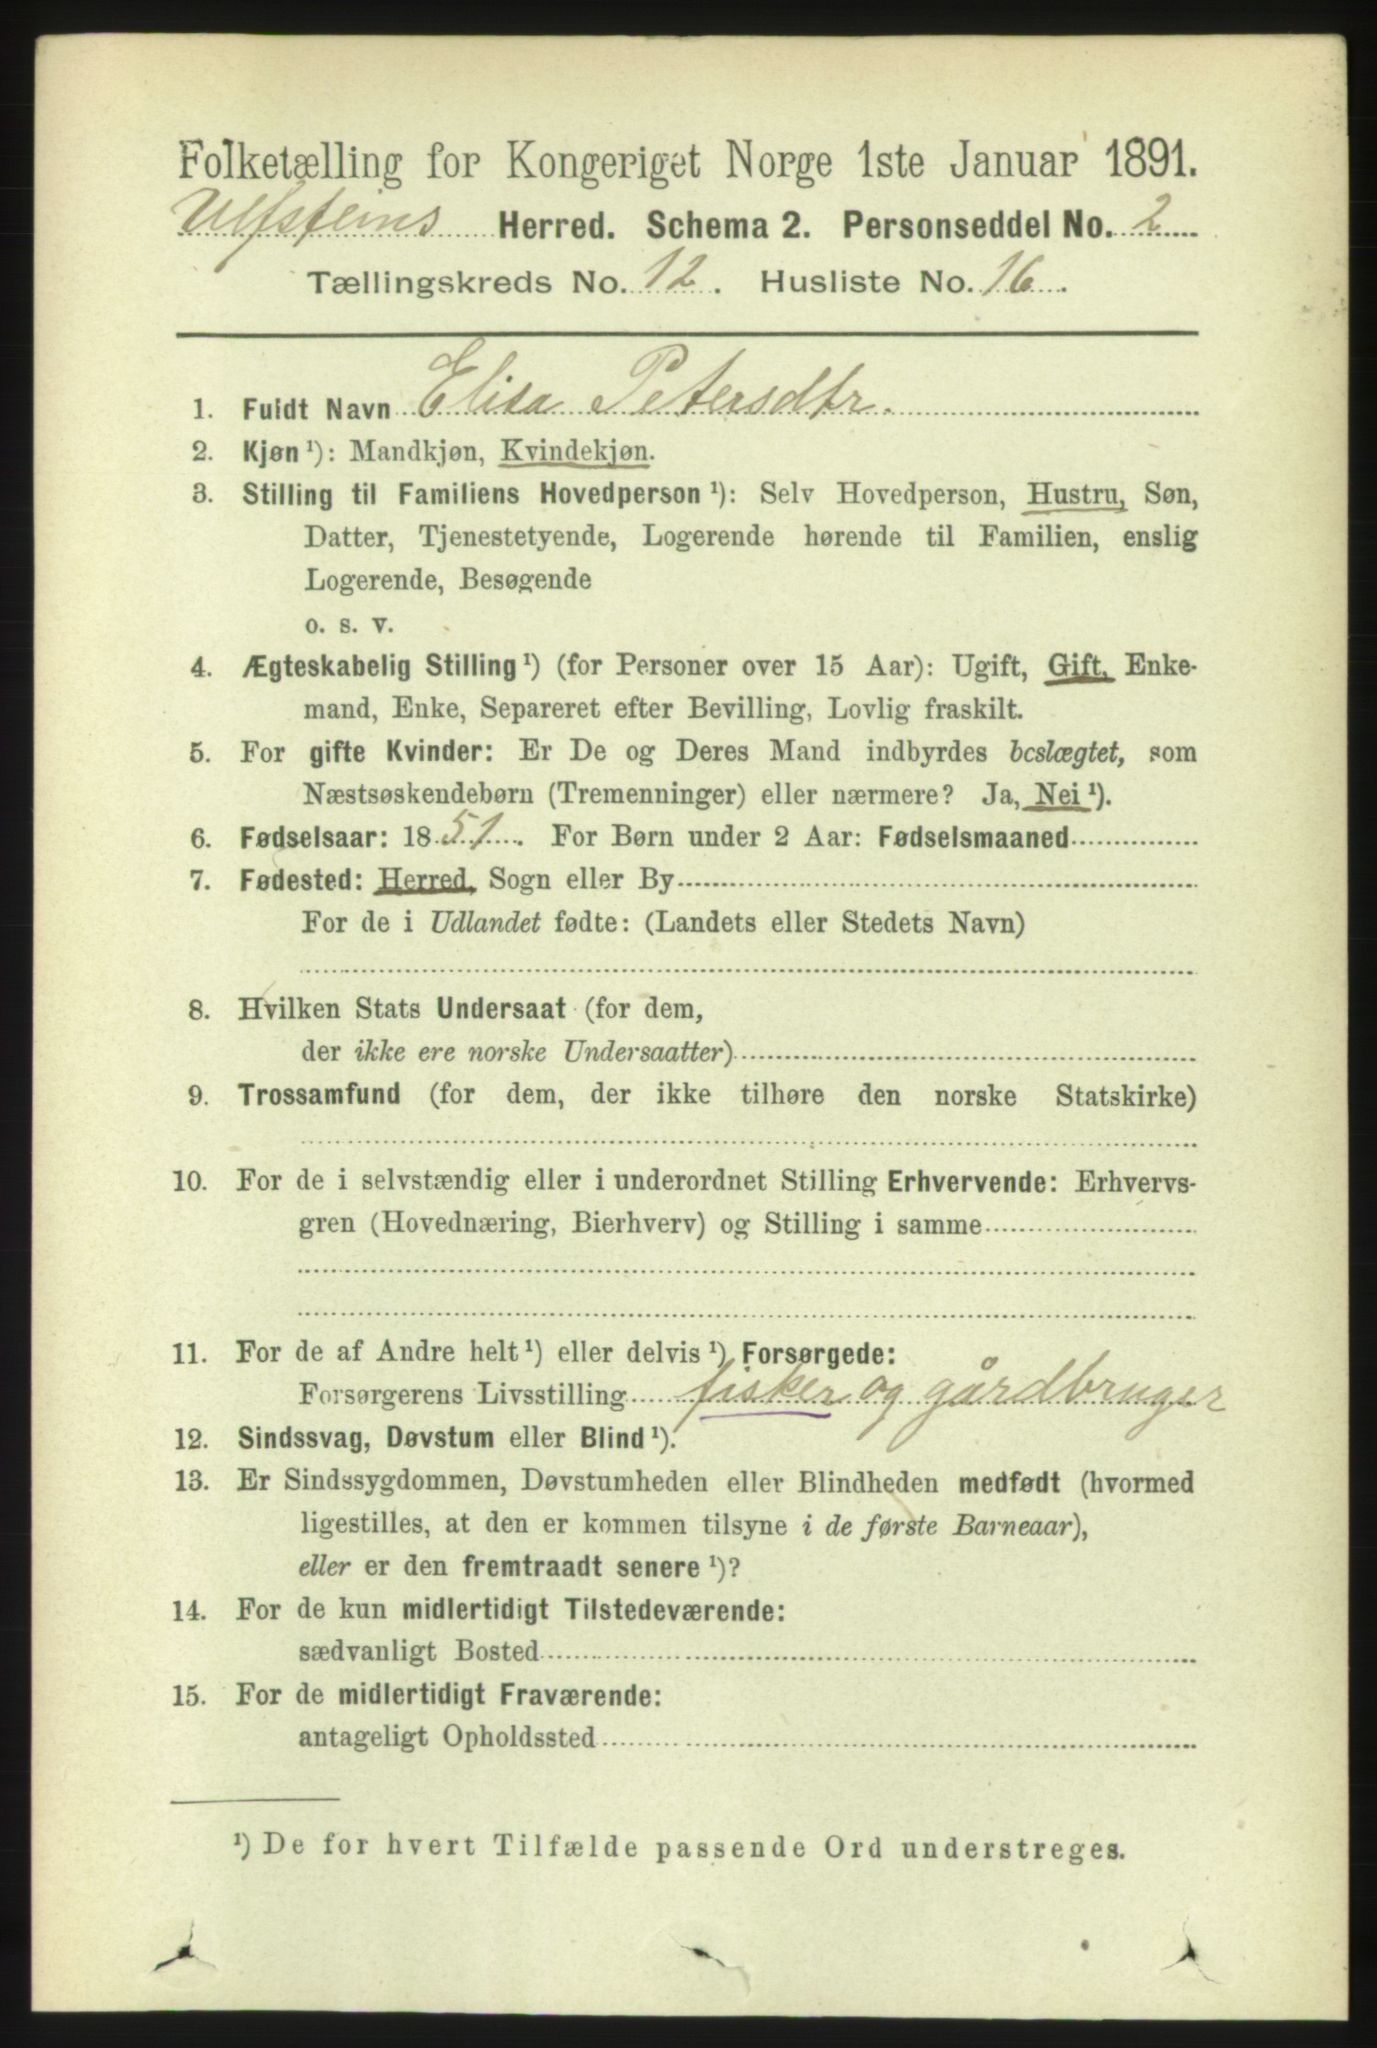 Folketælling for Kongeriget Norge 1ste Januar 1891.
Ulfsteins Herred. Schema 2. Personseddel No. 2
Tællingskreds No. 12. Husliste No. 16.
1. Fuldt Navn Elisa Petersdtr.
2. Kjøn ¹): Mandkjøn, Kvindekjøn.
3. Stilling til Familiens Hovedperson ¹): Selv Hovedperson, Hustru, Søn,
Datter, Tjenestetyende, Logerende hørende til Familien, enslig
Logerende, Besøgende
o. s. v.
4. Ægteskabelig Stilling ¹) (for Personer over 15 Aar): Ugift, Gift, Enke-
mand, Enke, Separeret efter Bevilling, Lovlig fraskilt.
5. For gifte Kvinder: Er De og Deres Mand indbyrdes beslægtet, som
Næstsøskendebørn (Tremenninger) eller nærmere? Ja, Nei ¹).
6. Fødselsaar: 1851. For Børn under 2 Aar: Fødselsmaaned
7. Fødested: Herred, Sogn eller By
For de i Udlandet fødte: (Landets eller Stedets Navn)
8. Hvilken Stats Undersaat (for dem,
der ikke ere norske Undersaatter)
9. Trossamfund (for dem, der ikke tilhøre den norske Statskirke)
10. For de i selvstændig eller i underordnet Stilling Erhvervende: Erhvervs-
gren (Hovednæring, Bierhverv) og Stilling i samme
11. For de af Andre helt ¹) eller delvis ¹) Forsørgede:
Forsørgerens Livsstilling fisker og gårdbruger
12. Sindssvag, Døvstum eller Blind ¹).
13. Er Sindssygdommen, Døvstumheden eller Blindheden medfødt (hvormed
ligestilles, at den er kommen tilsyne i de første Barneaar),
eller er den fremtraadt senere ¹)?
14. For de kun midlertidigt Tilstedeværende:
sædvanligt Bosted
15. For de midlertidigt Fraværende:
antageligt Opholdssted
¹) De for hvert Tilfælde passende Ord understreges.